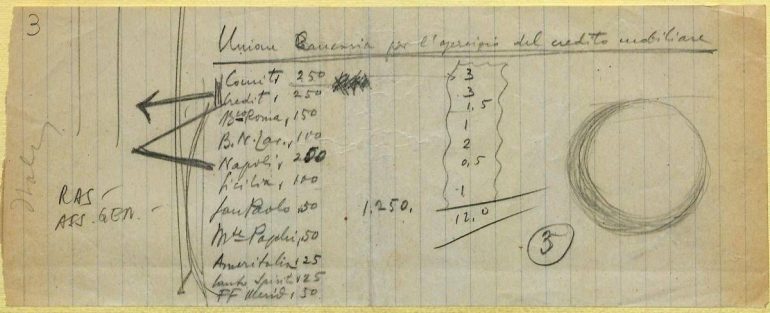 3
Unione Bancaria per l'esercizio del credito mobiliare
Comit, 250 3
Credit, 250 3
Bco Roma, 150 1,5
B.N.Lav., 100 1
Napoli, 200 2
Sicilia, 100 0,5
San Paolo, 50 1.250. 1
Mte Paschi, 50 12,0
Ameritalia, 25
Santo Spirito, 25
FF Merid, 50
RAS -
ASS. GEN. -
3